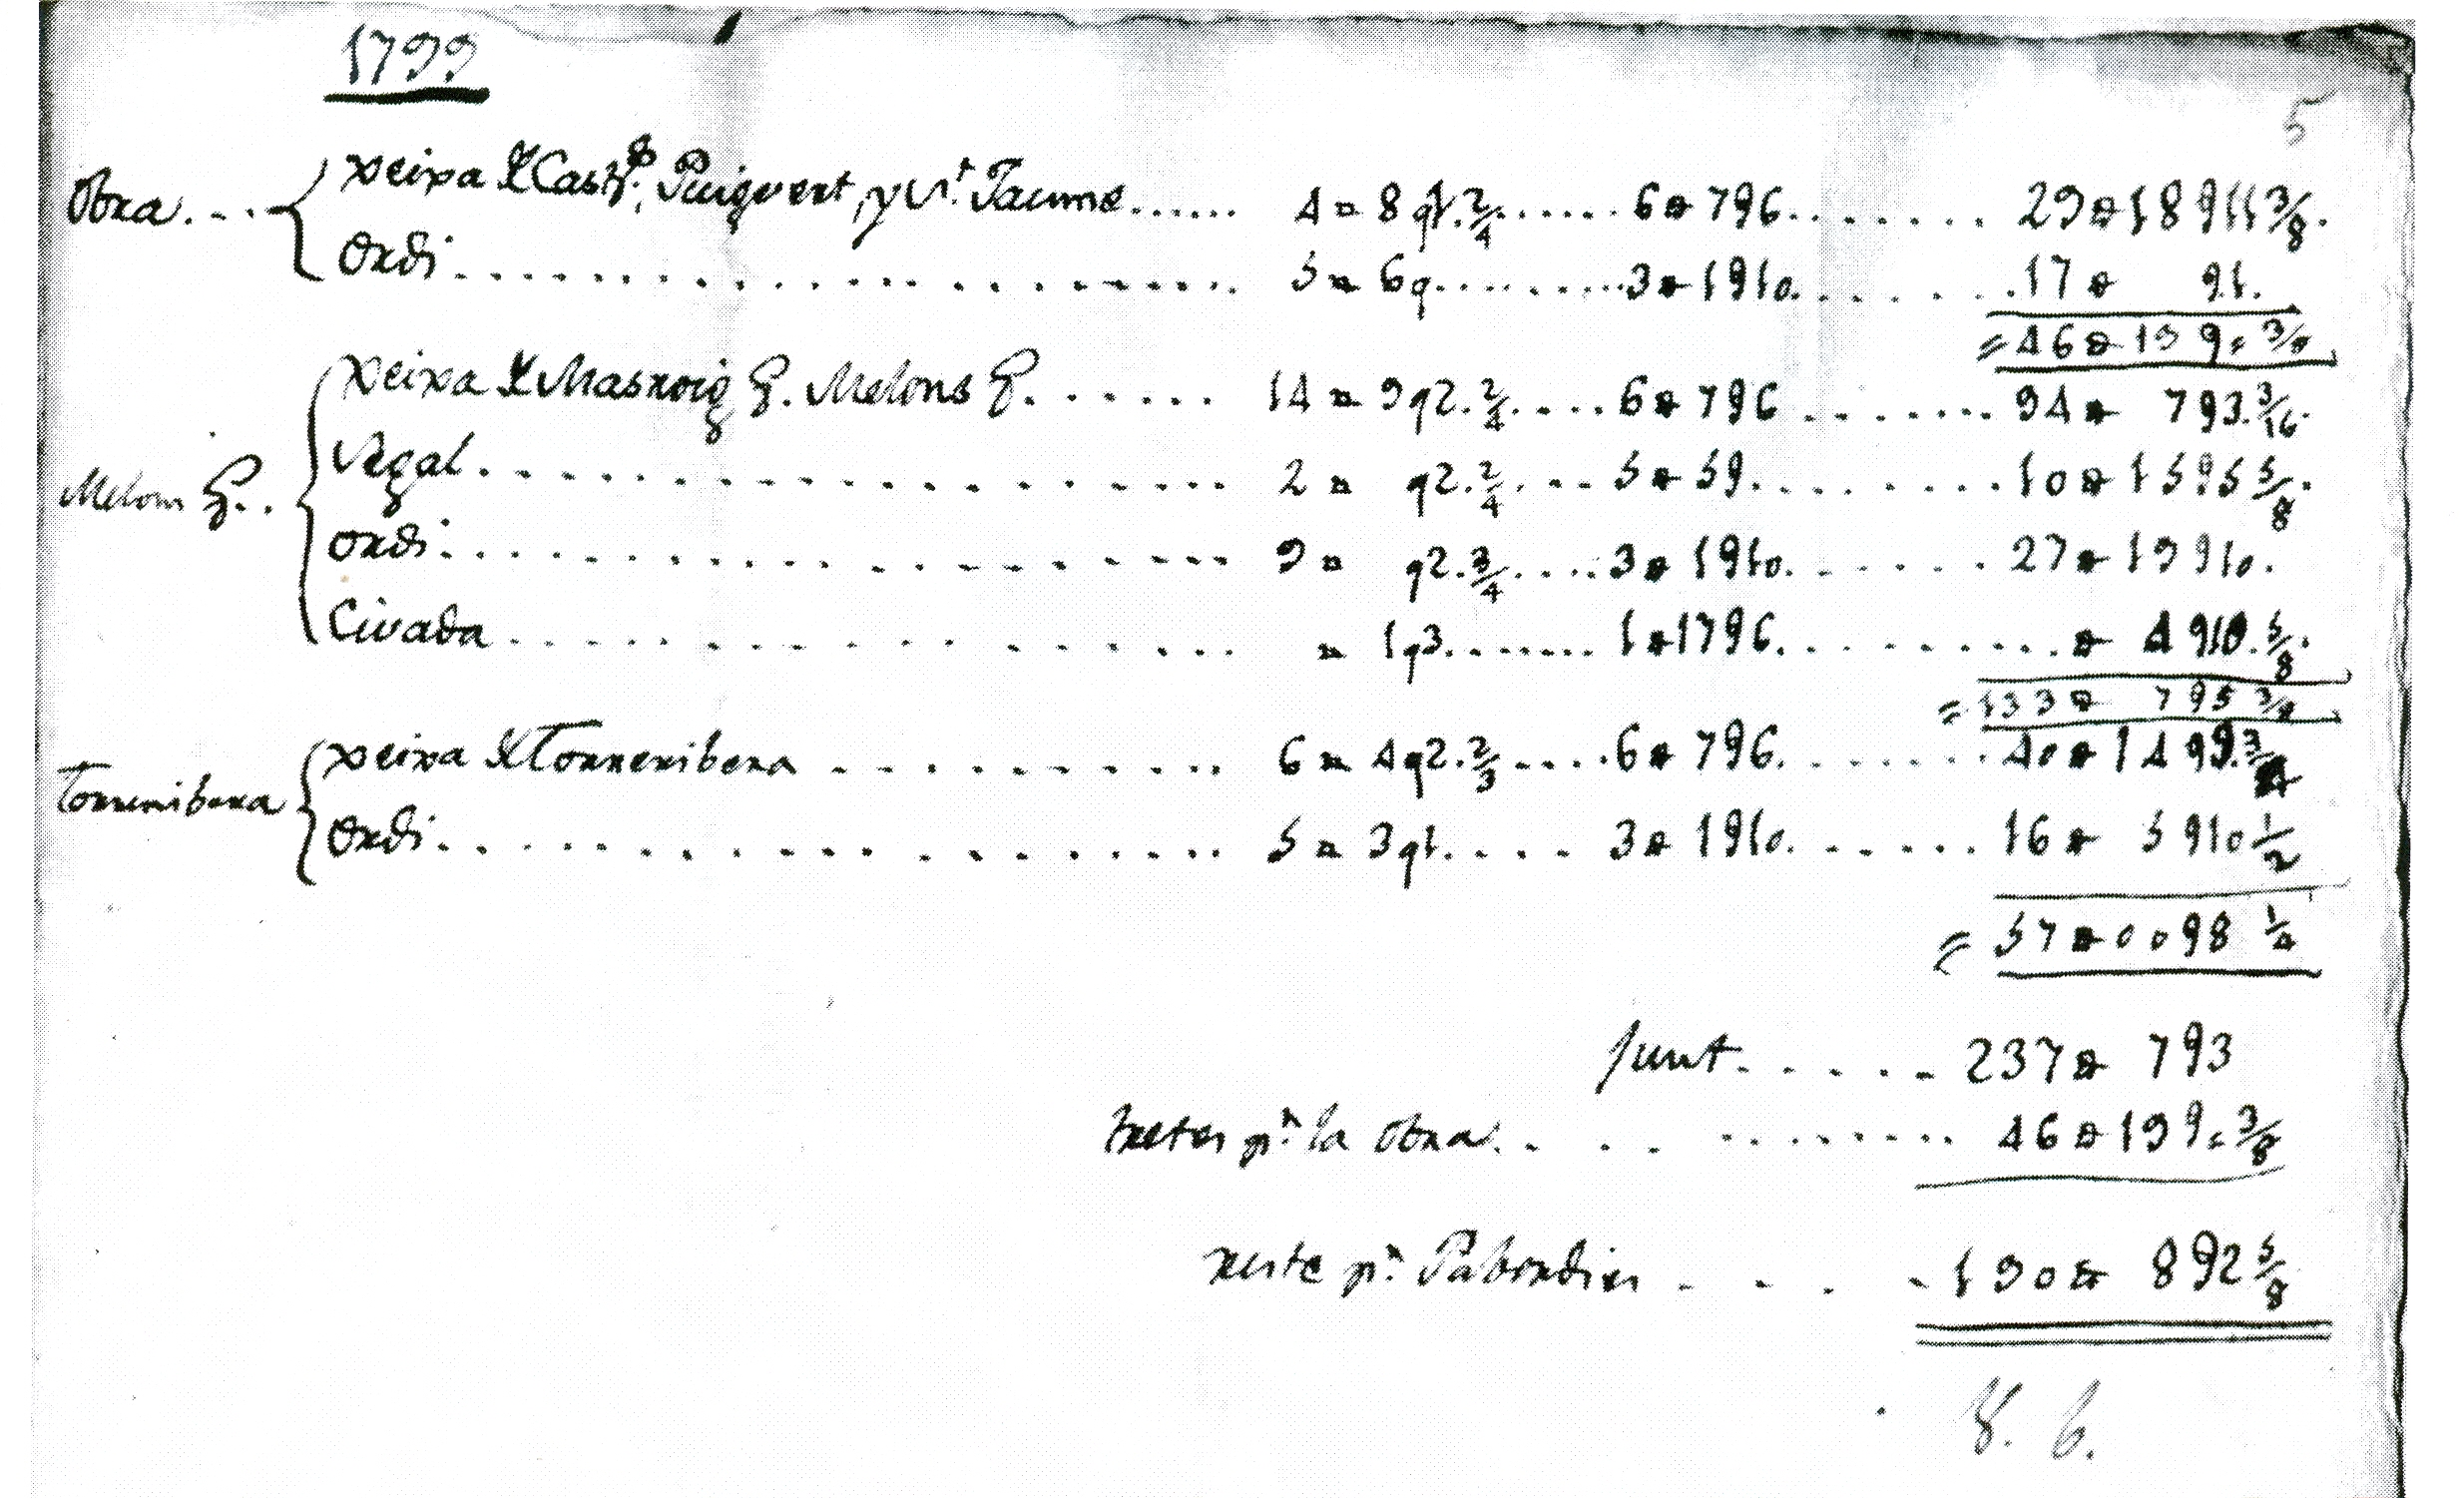 1799
5
Obra... xeixa Castº, Puigvert, y St. Jaume...... 4 = 8 qt. 2/4...... 6 ⹀ 7 9 6......... 29 ⹀ 18 9 11 3/8.
Ordi............ 5 = 6 q......... 3 ⹀ 1 9 10...... 17 ⹀ 9 1.
= 46 ⹀ 19 9 = 3/8
xeixa Masroig G. Melons G....... 14 = 9 q 2. 2/4.... 6 ⹀ 7 9 6....... 94 ⹀ 7 9 3. 3/16.
Melons G.. Segal............ 2 = q 2. 2/4... 5 ⹀ 5 9......... 10 ⹀ 15 9 5 5/8.
ordi............ 9 = q 2. 3/4.... 3 ⹀ 1 9 10....... 27 ⹀ 19 9 10.
Civada............ = 1 q 3....... 1 ⹀ 17 9 6......... ⹀ 4 9 10. 5/8.
= 133 ⹀ 7 9 5 3/8
Torrenibera xeixa Torrenibera......... 6 = 4 q 2. 2/3.... 6 ⹀ 7 9 6....... 40 ⹀ 14 9 9. 3/4
Ordi............ 5 = 3 q 1..... 3 ⹀ 1 9 10...... 16 ⹀ 5 9 10 1/2
= 57 ⹀ 00 9 8 1/4
Junt..... 237 ⹀ 7 9 3
tretes pª la obra......... 46 ⹀ 19 9 = 3/8
reste pª Pabordies.... 190 ⹀ 8 9 2 5/8